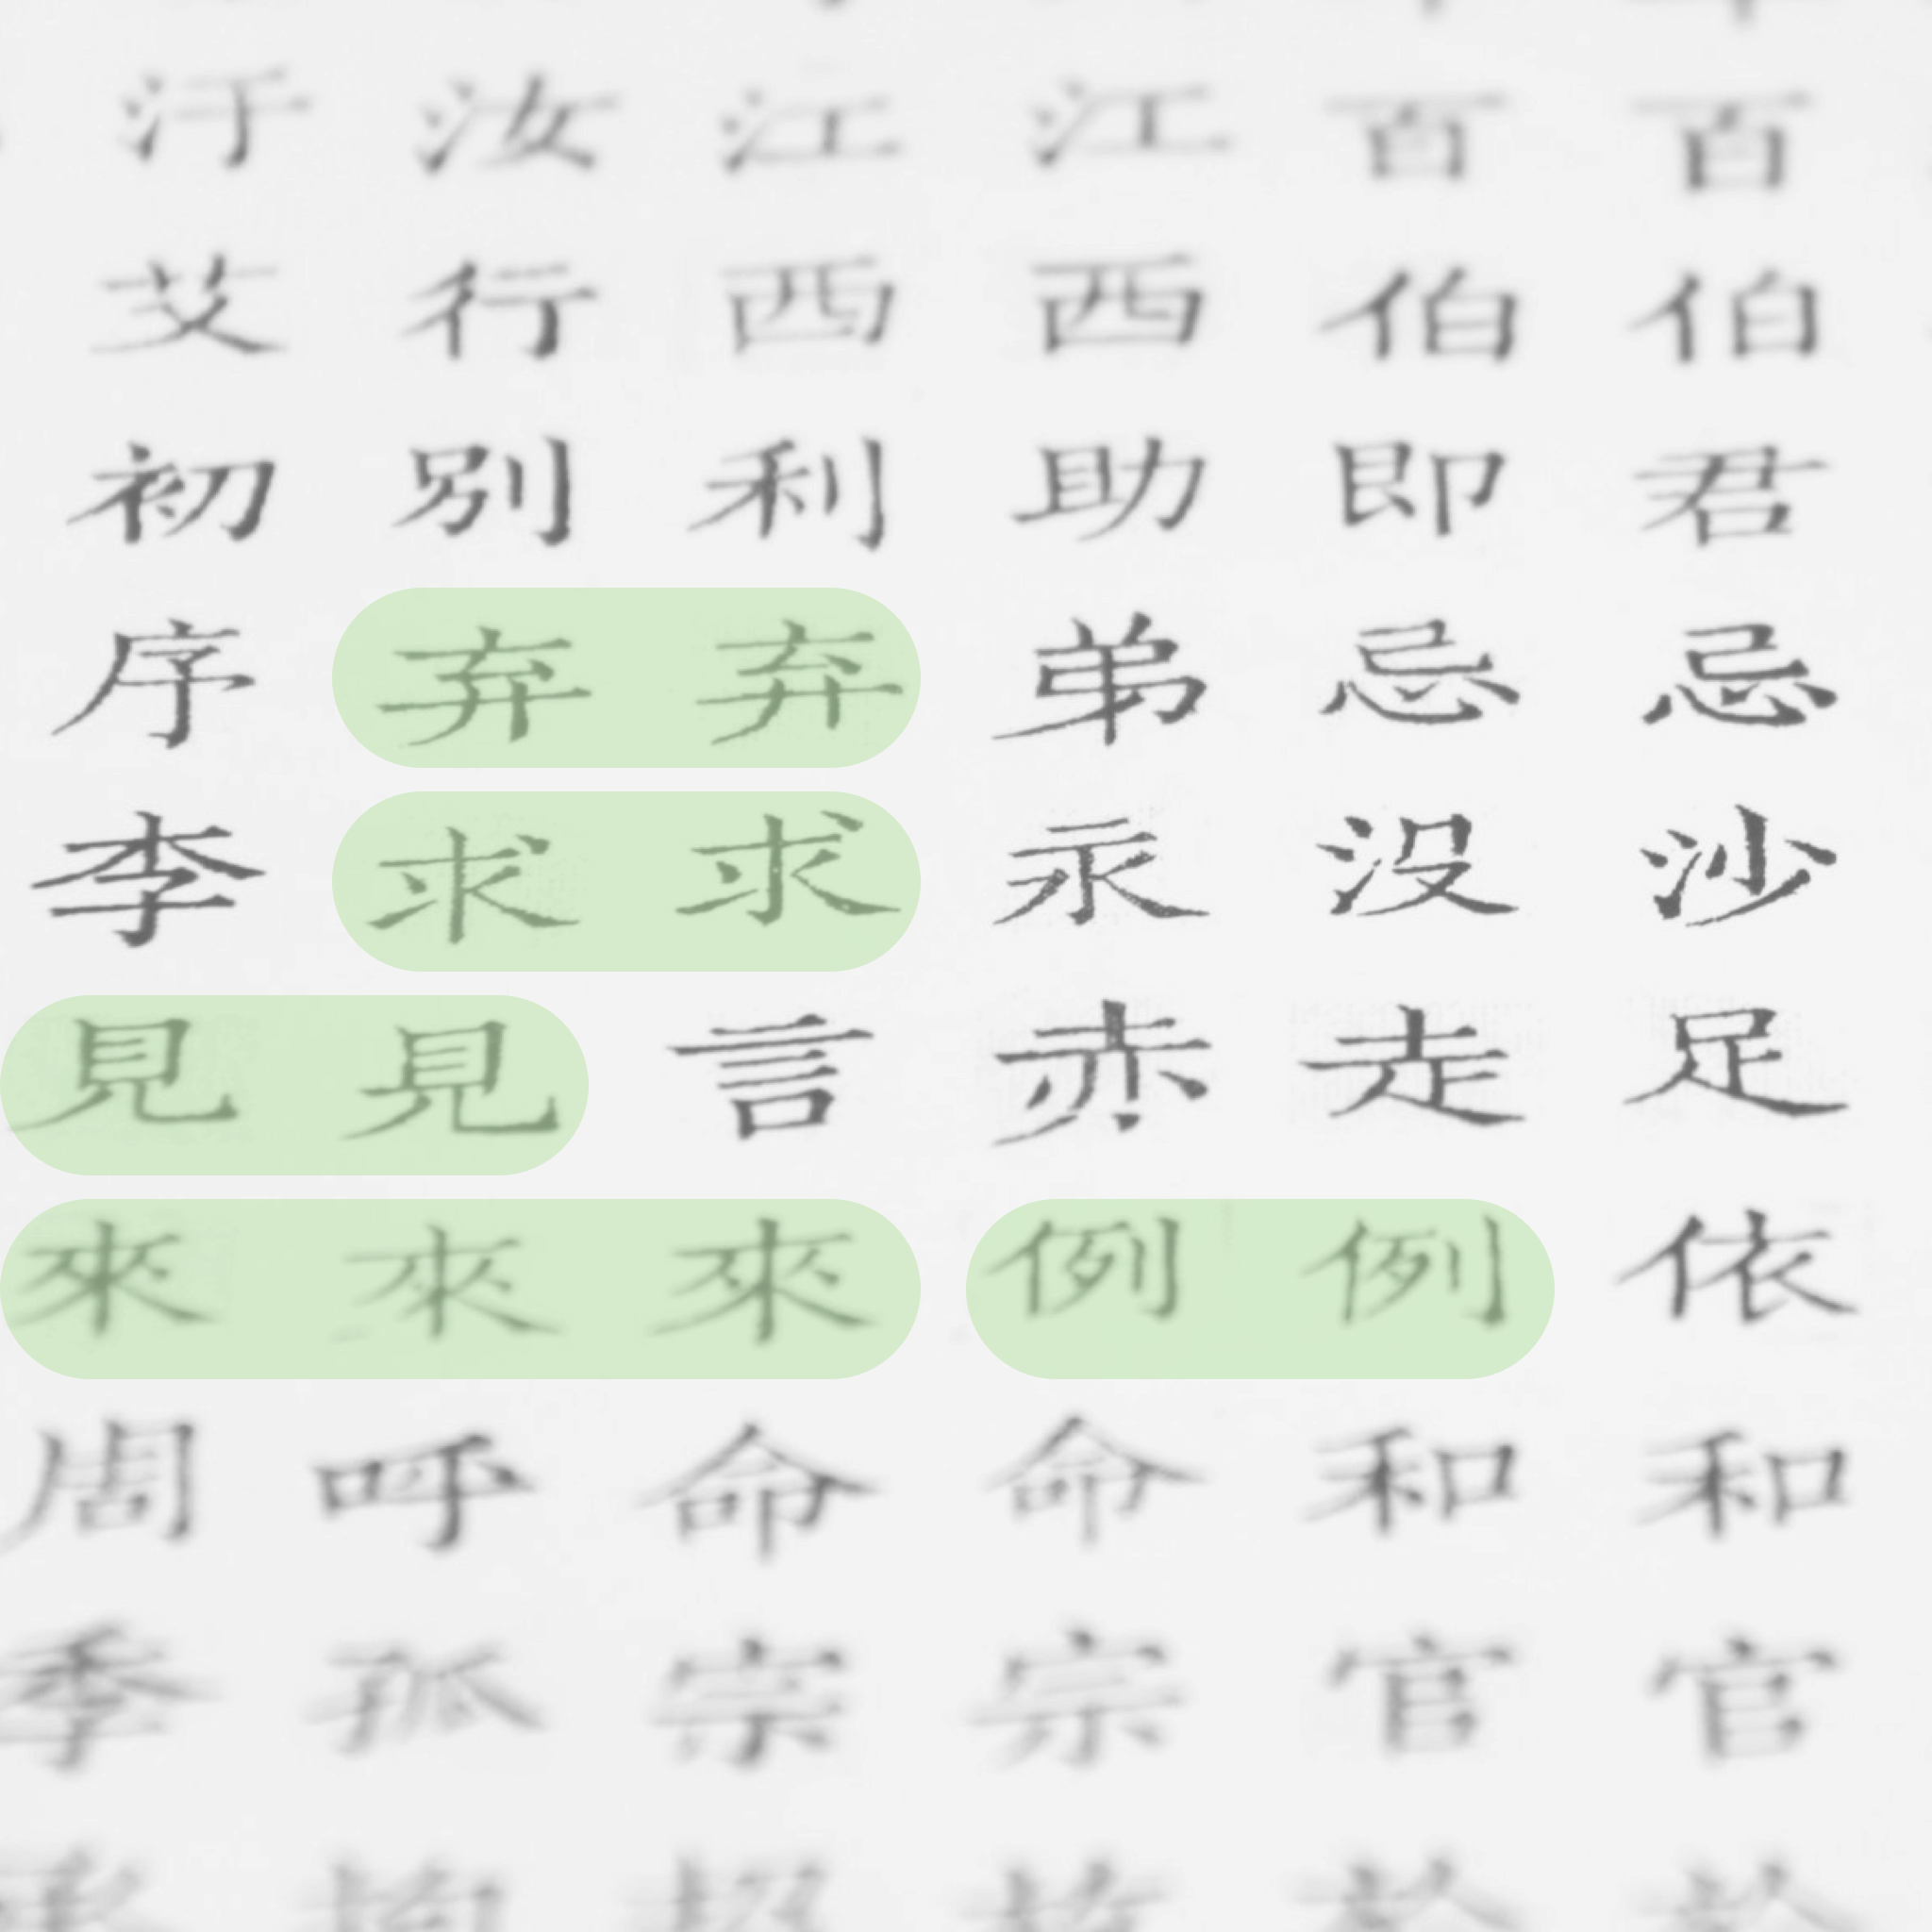 汙汝江江百百
艾行西西伯伯
初別利助即君
序弃弃弟忌忌
李求求汞沒沙
見見言赤走足
來來來例例依
周呼命命和和
季孤宗宗官官